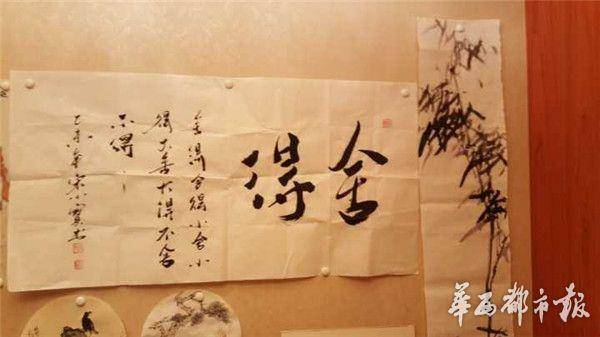 舍得
舍得舍得小舍小
得大舍大得不舍
不得
乙未年宋小宝书
华西都市报